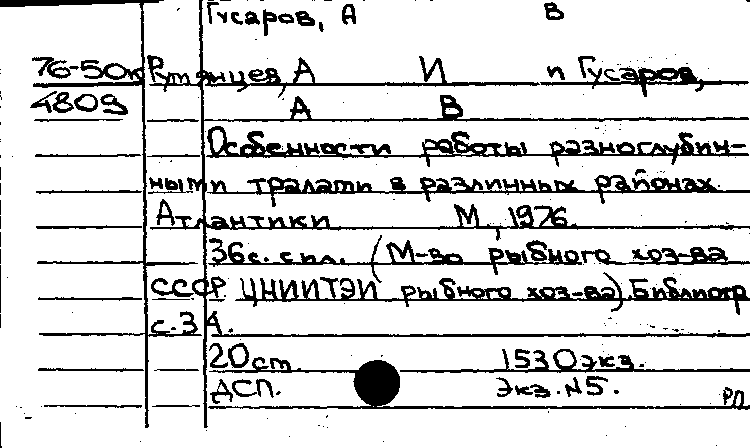 Гусаров, А В
76-50к Румянцев, А И и Гусаров,
4809 А В
Особенности работы разноглубин-
ными тралами в различных районах
Атлантики М., 1976.
36с. с ил. (М-во рыбного хоз-ва
СССР ЦНИИТЭИ рыбного хоз-ва). Библиогр
с.34.
20 см 1530 экз.
ДСП. Экз. N5.
РП